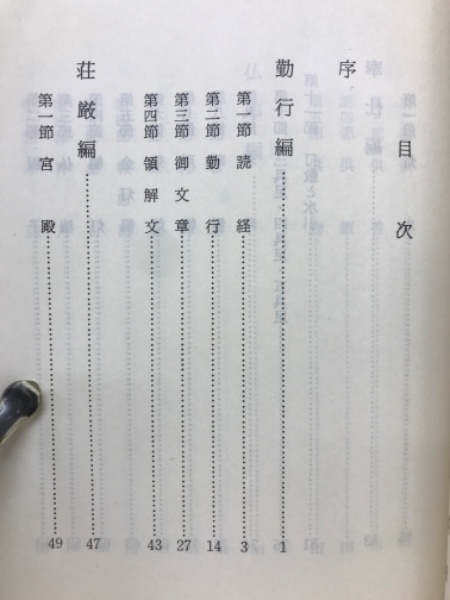 目次
序
勤行編……………………1
第一節 読経……………………3
第二節 勤行……………………14
第三節 御文章……………………27
第四節 領解文……………………43
荘厳編……………………47
第一節 宮殿……………………49